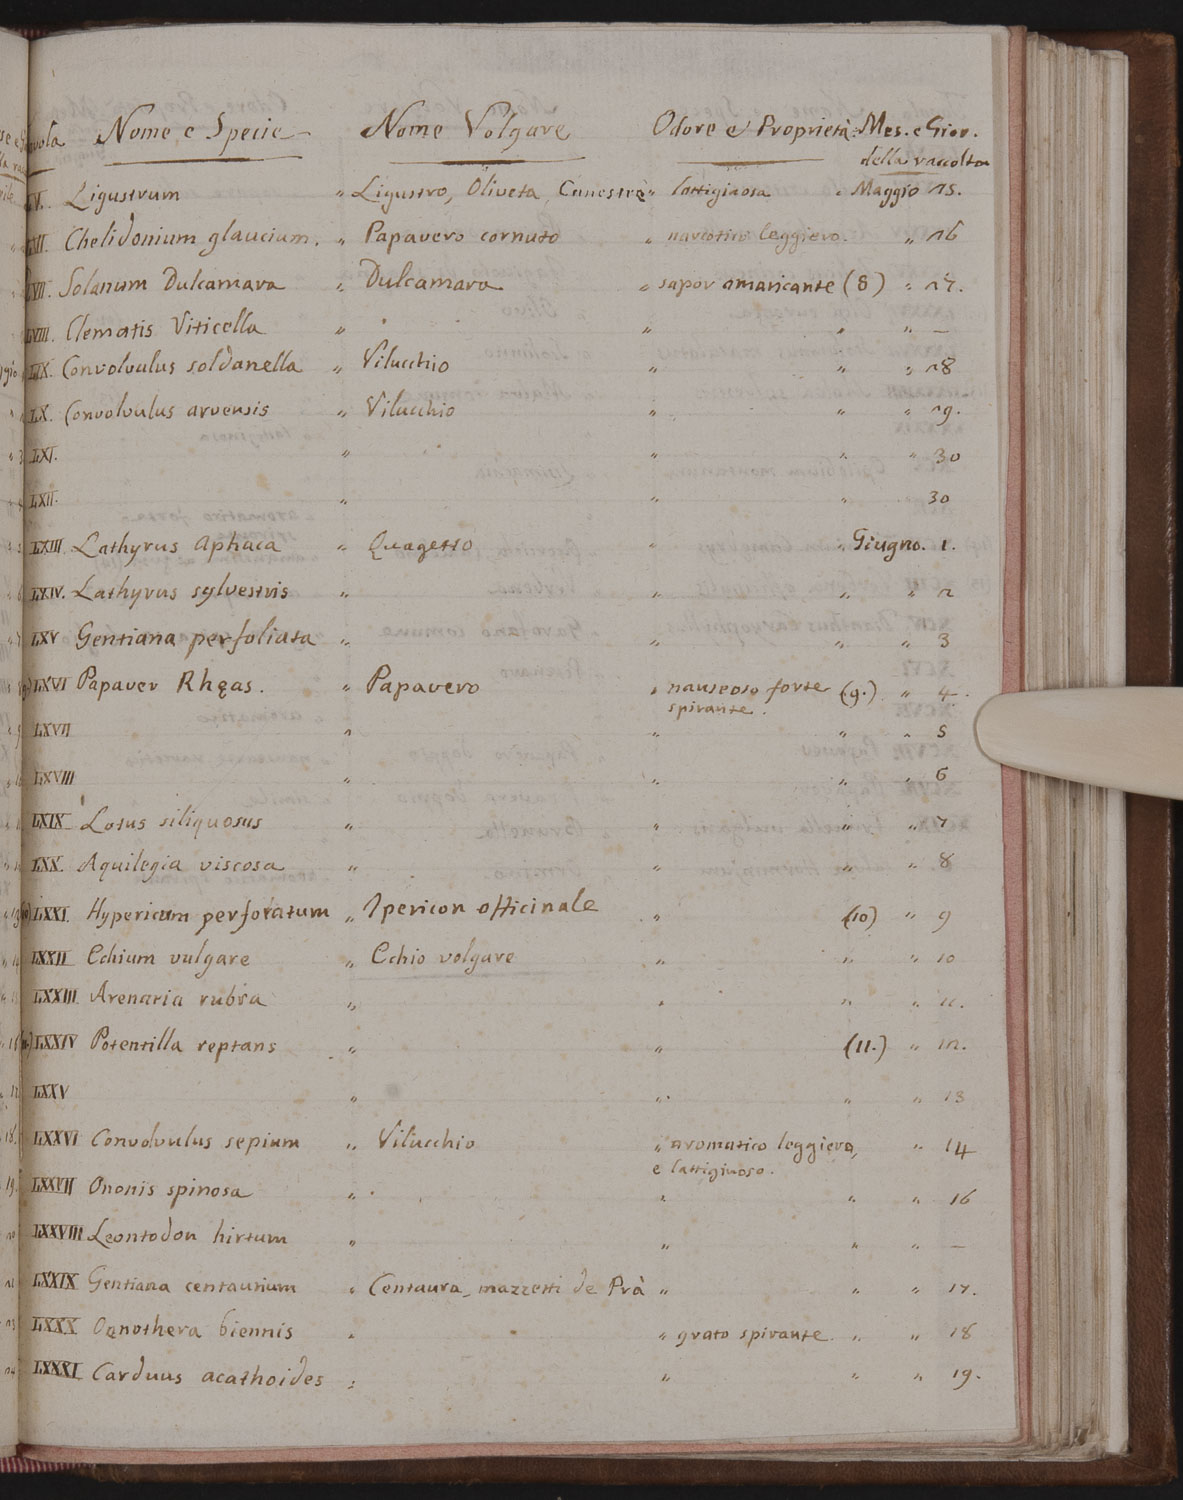 Nome e Specie Nome Volgare Odore e Proprietà Mes. e Gior.
della raccolta
Ligustrum " Ligustro, Oliveta, Canestrè " lattiginosa " Maggio 15.
Chelidonium glaucium. " Papavero cornuto " narcotico leggiero. " 16
Solanum Dulcamara " Dulcamara " sapor amaricante (8) " 17.
LVIII. Clematis Viticella " " " " —
LIX. Convolvulus soldanella " Vilucchio " " " 18
LX. Convolvulus arvensis " Vilucchio " " " 19.
LXI. " " " " 30
LXII. " " " 30
LXIII Lathyrus Aphaca " Quagetto " " Giugno. 1.
LXIV. Lathyrus sylvestris " " " " 2
LXV Gentiana perfoliata " " " " 3
LXVI Papaver Rhęas. " Papavero " nauseoso forte (9.) " 4.
spirante.
LXVII " " " " 5
LXVIII " " " " 6
LXIX Lotus siliquosus " " " " 7
LXX. Aquilegia viscosa " " " " 8
LXXI. Hypericum perforatum " Ipericon officinale " (10) " 9
LXXII Echium vulgare " Echio volgare " " " 10
LXXIII. Arenaria rubra " " " " 11.
LXXIV Potentilla reptans " " (11.) " 12.
LXXV " " " " 13
LXXVI Convolvulus sepium " Vilucchio " aromatico leggiero, " 14
e lattiginoso.
LXXVII Ononis spinosa " " " " 16
LXXVIII Leontodon hirtum " " " " —
LXXIX Gentiana centaurium " Centaura, mazzetti de Prà " " " 17.
LXXX Oenothera biennis " " grato spirante. " " 18
LXXXI Carduus acathoides " " " " 19.